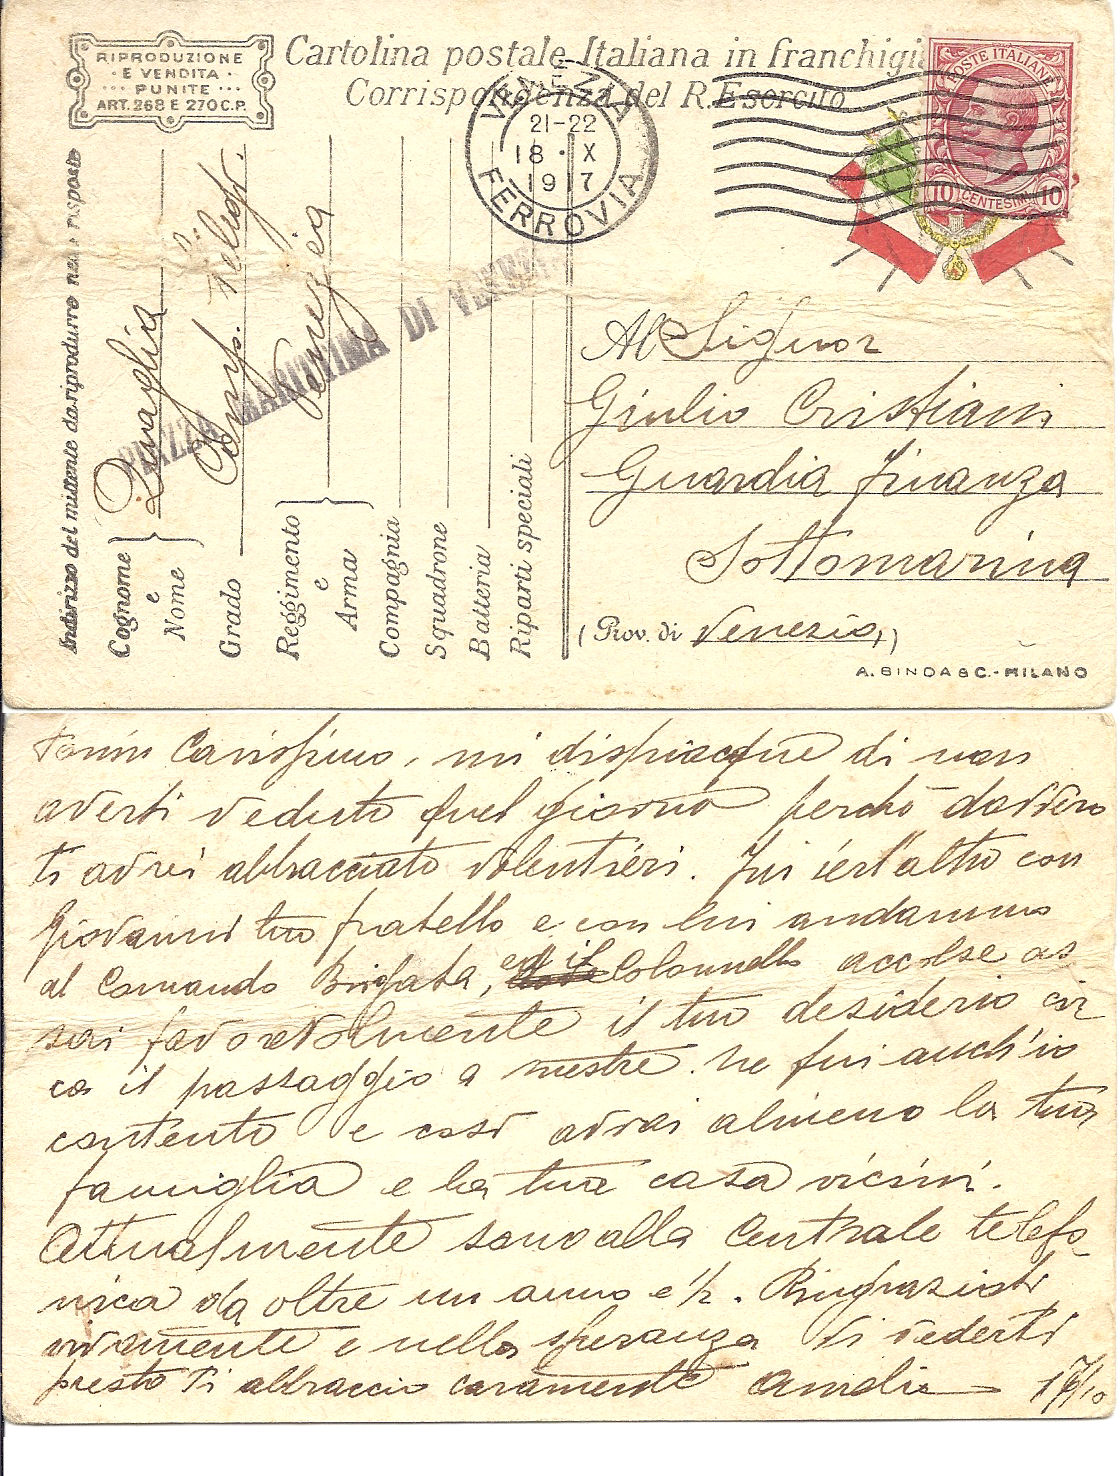 RIPRODUZIONE
· E VENDITA ·
··· PUNITE ···
ART. 268 E 270 C.P.
Cartolina postale Italiana in franchigia
Corrispondenza del R. Esercito
VENEZIA
21-22
18 · X
1917
FERROVIA
POSTE ITALIANE
10 CENTESIMI 10
Indirizzo del mittente da riprodurre nelle risposte
Cognome e Nome Quaglia
Grado
Reggimento e Arma Venezia
Compagnia
Squadrone
Batteria
Riparti speciali
PIAZZA MARITTIMA DI VENEZIA
Al Signor
Giulio Cristiani
Guardia Finanza
Sottomarina
(Prov. di Venezia)
A. BINDA & C. - MILANO
mi dispiacque di non
averti veduto quel giorno perchè davvero
ti avrei abbracciato volentieri. Fui ierl'altro con
Giovanni tuo fratello e con lui andammo
al Comando Brigata, ed il Colonnello accolse as
sai favorevolmente il tuo desiderio cir
ca il passaggio a mestre. Ne fui anch'io
contento e così avrai almeno la tua
famiglia e la tua casa vicini.
Attualmente sono alla Centrale telefo-
nica da oltre un anno e ½. Ringrazioti
vivamente e nella speranza di vederti
presto ti abbraccio caramente